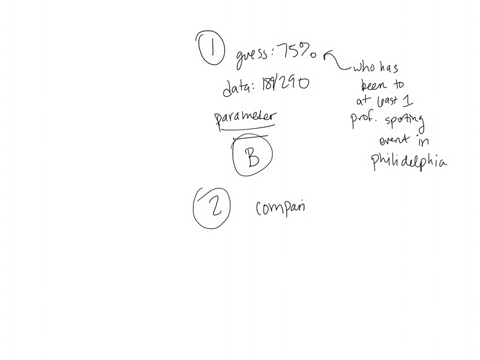 1
guess: 75%
data: 189/290
parameter
B
who has
been to
at least 1
prof. sporting
event in
philidelphia
2
compari